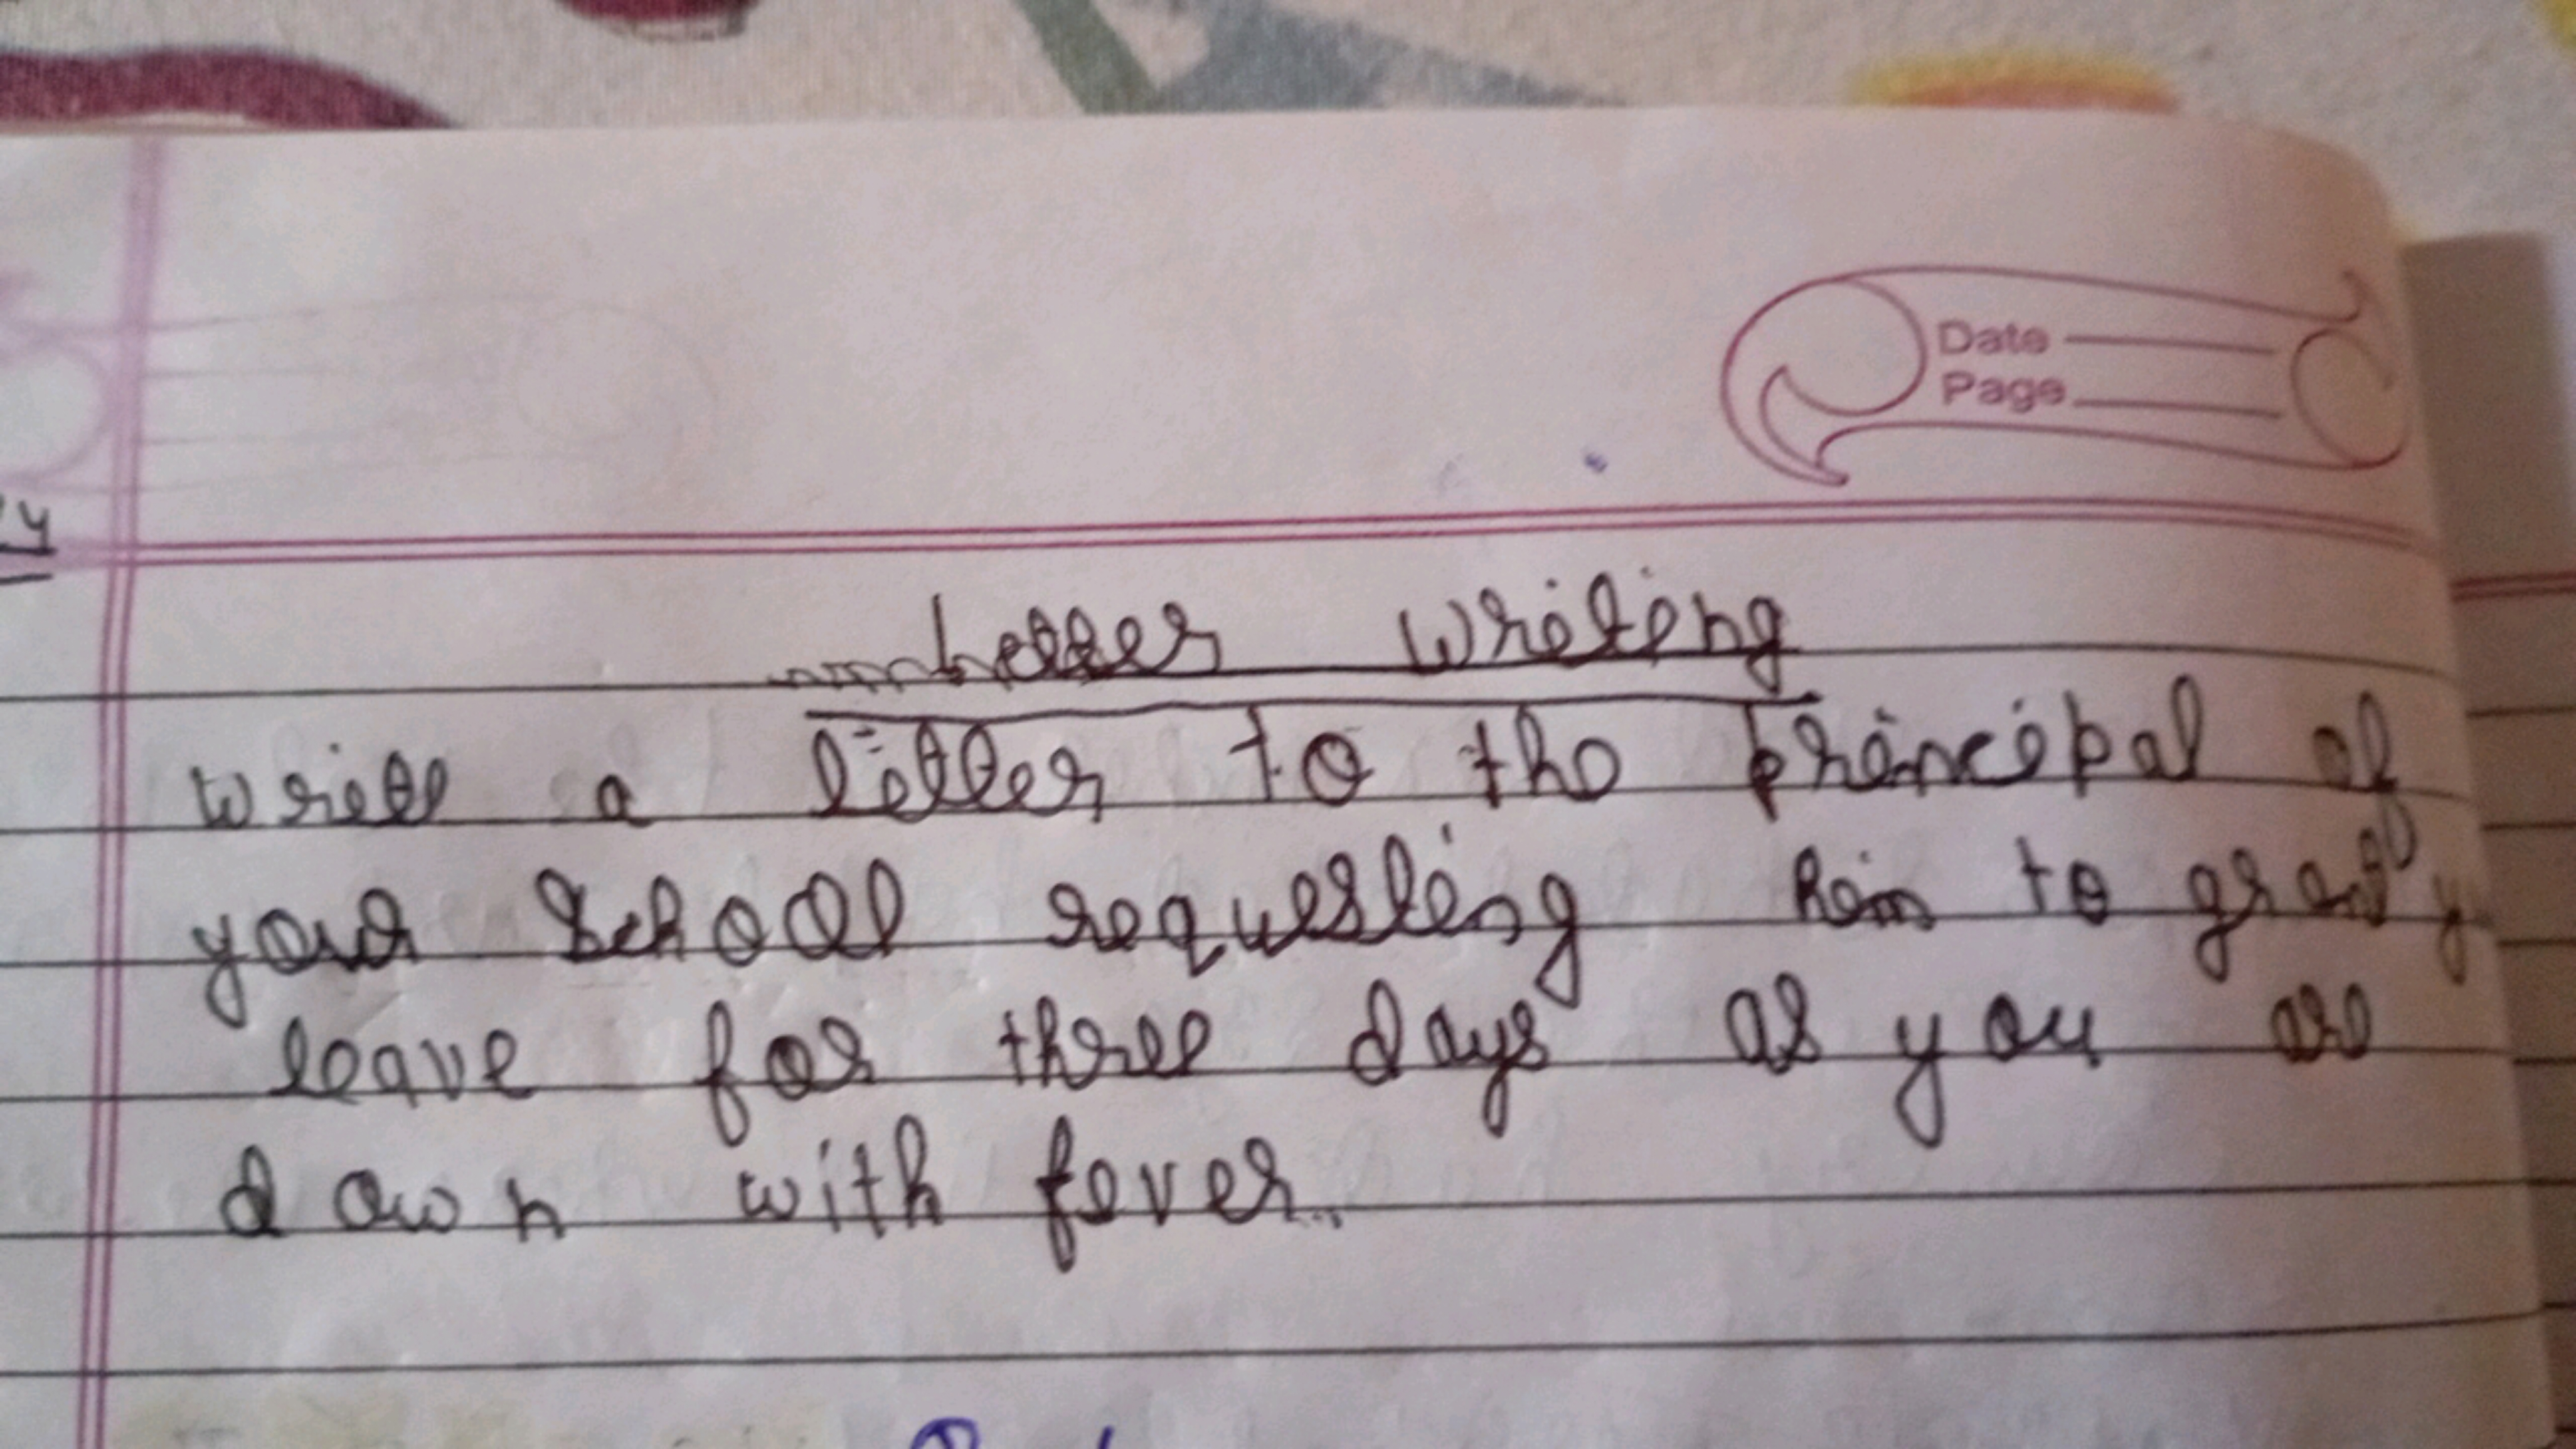 Date
Page
y
Letter Writing
Write a letter to the principal of
your school requesting him to grant y
leave for three days as you are
down with fever.